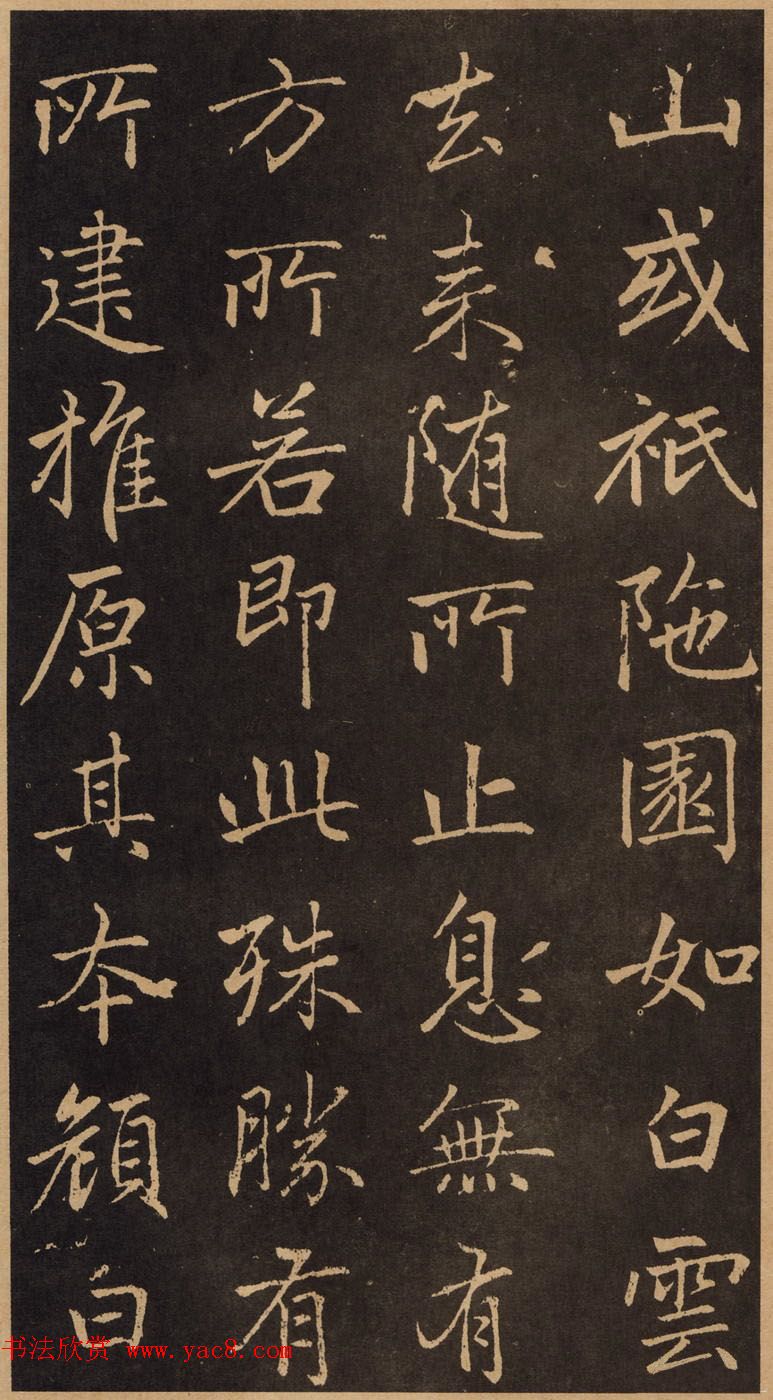 山或祇陁園如白雲
去来随所止息無有
方所若即此殊勝有
所建推原其本願白
书法欣赏 www.yac8.com